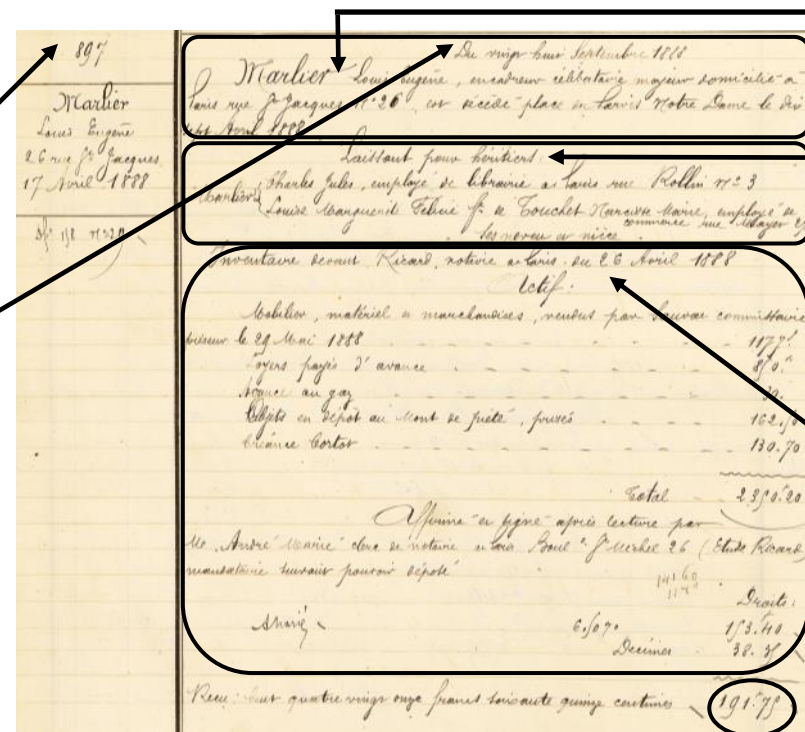 897
Marlier
Louis Eugène
26 rue St Jacques
17 Avril 1888
Du vingt huit Septembre 1888
Marlier Louis Eugène, encadreur célibataire majeur domicilié à
Paris rue St Jacques N° 26, est décédé place du Parvis Notre Dame le dix
sept Avril 1888
Laissant pour héritiers:
Marlier Charles Jules, employé de librairie à Paris rue Rollin n° 3
Louise Marguerite Felicie fe de Touchet Narcisse Marie, employé de
commerce rue
ses neveu et nièce
Inventaire devant Ricard, notaire à Paris du 26 Avril 1888
Actif:
Mobilier, matériel et marchandises, vendus par commissaire
priseur le 29 Mai 1888 1177f.
Loyers payés d'avance 850.
Avance au gaz 30.
Objets en dépôt au Mont de piété, prisés 162.50
Créance Cortot 130.70
Total 2350.20
Affirmé et signé après lecture par
Mr André Marié clerc de notaire à Paris Boul. St Michel 26 (Etude Ricard)
mandataire suivant pouvoir déposé
Droits:
6.50% 153.40
Décimes 38.35
Reçu: Cent quatre vingt onze francs soixante quinze centimes 191.75